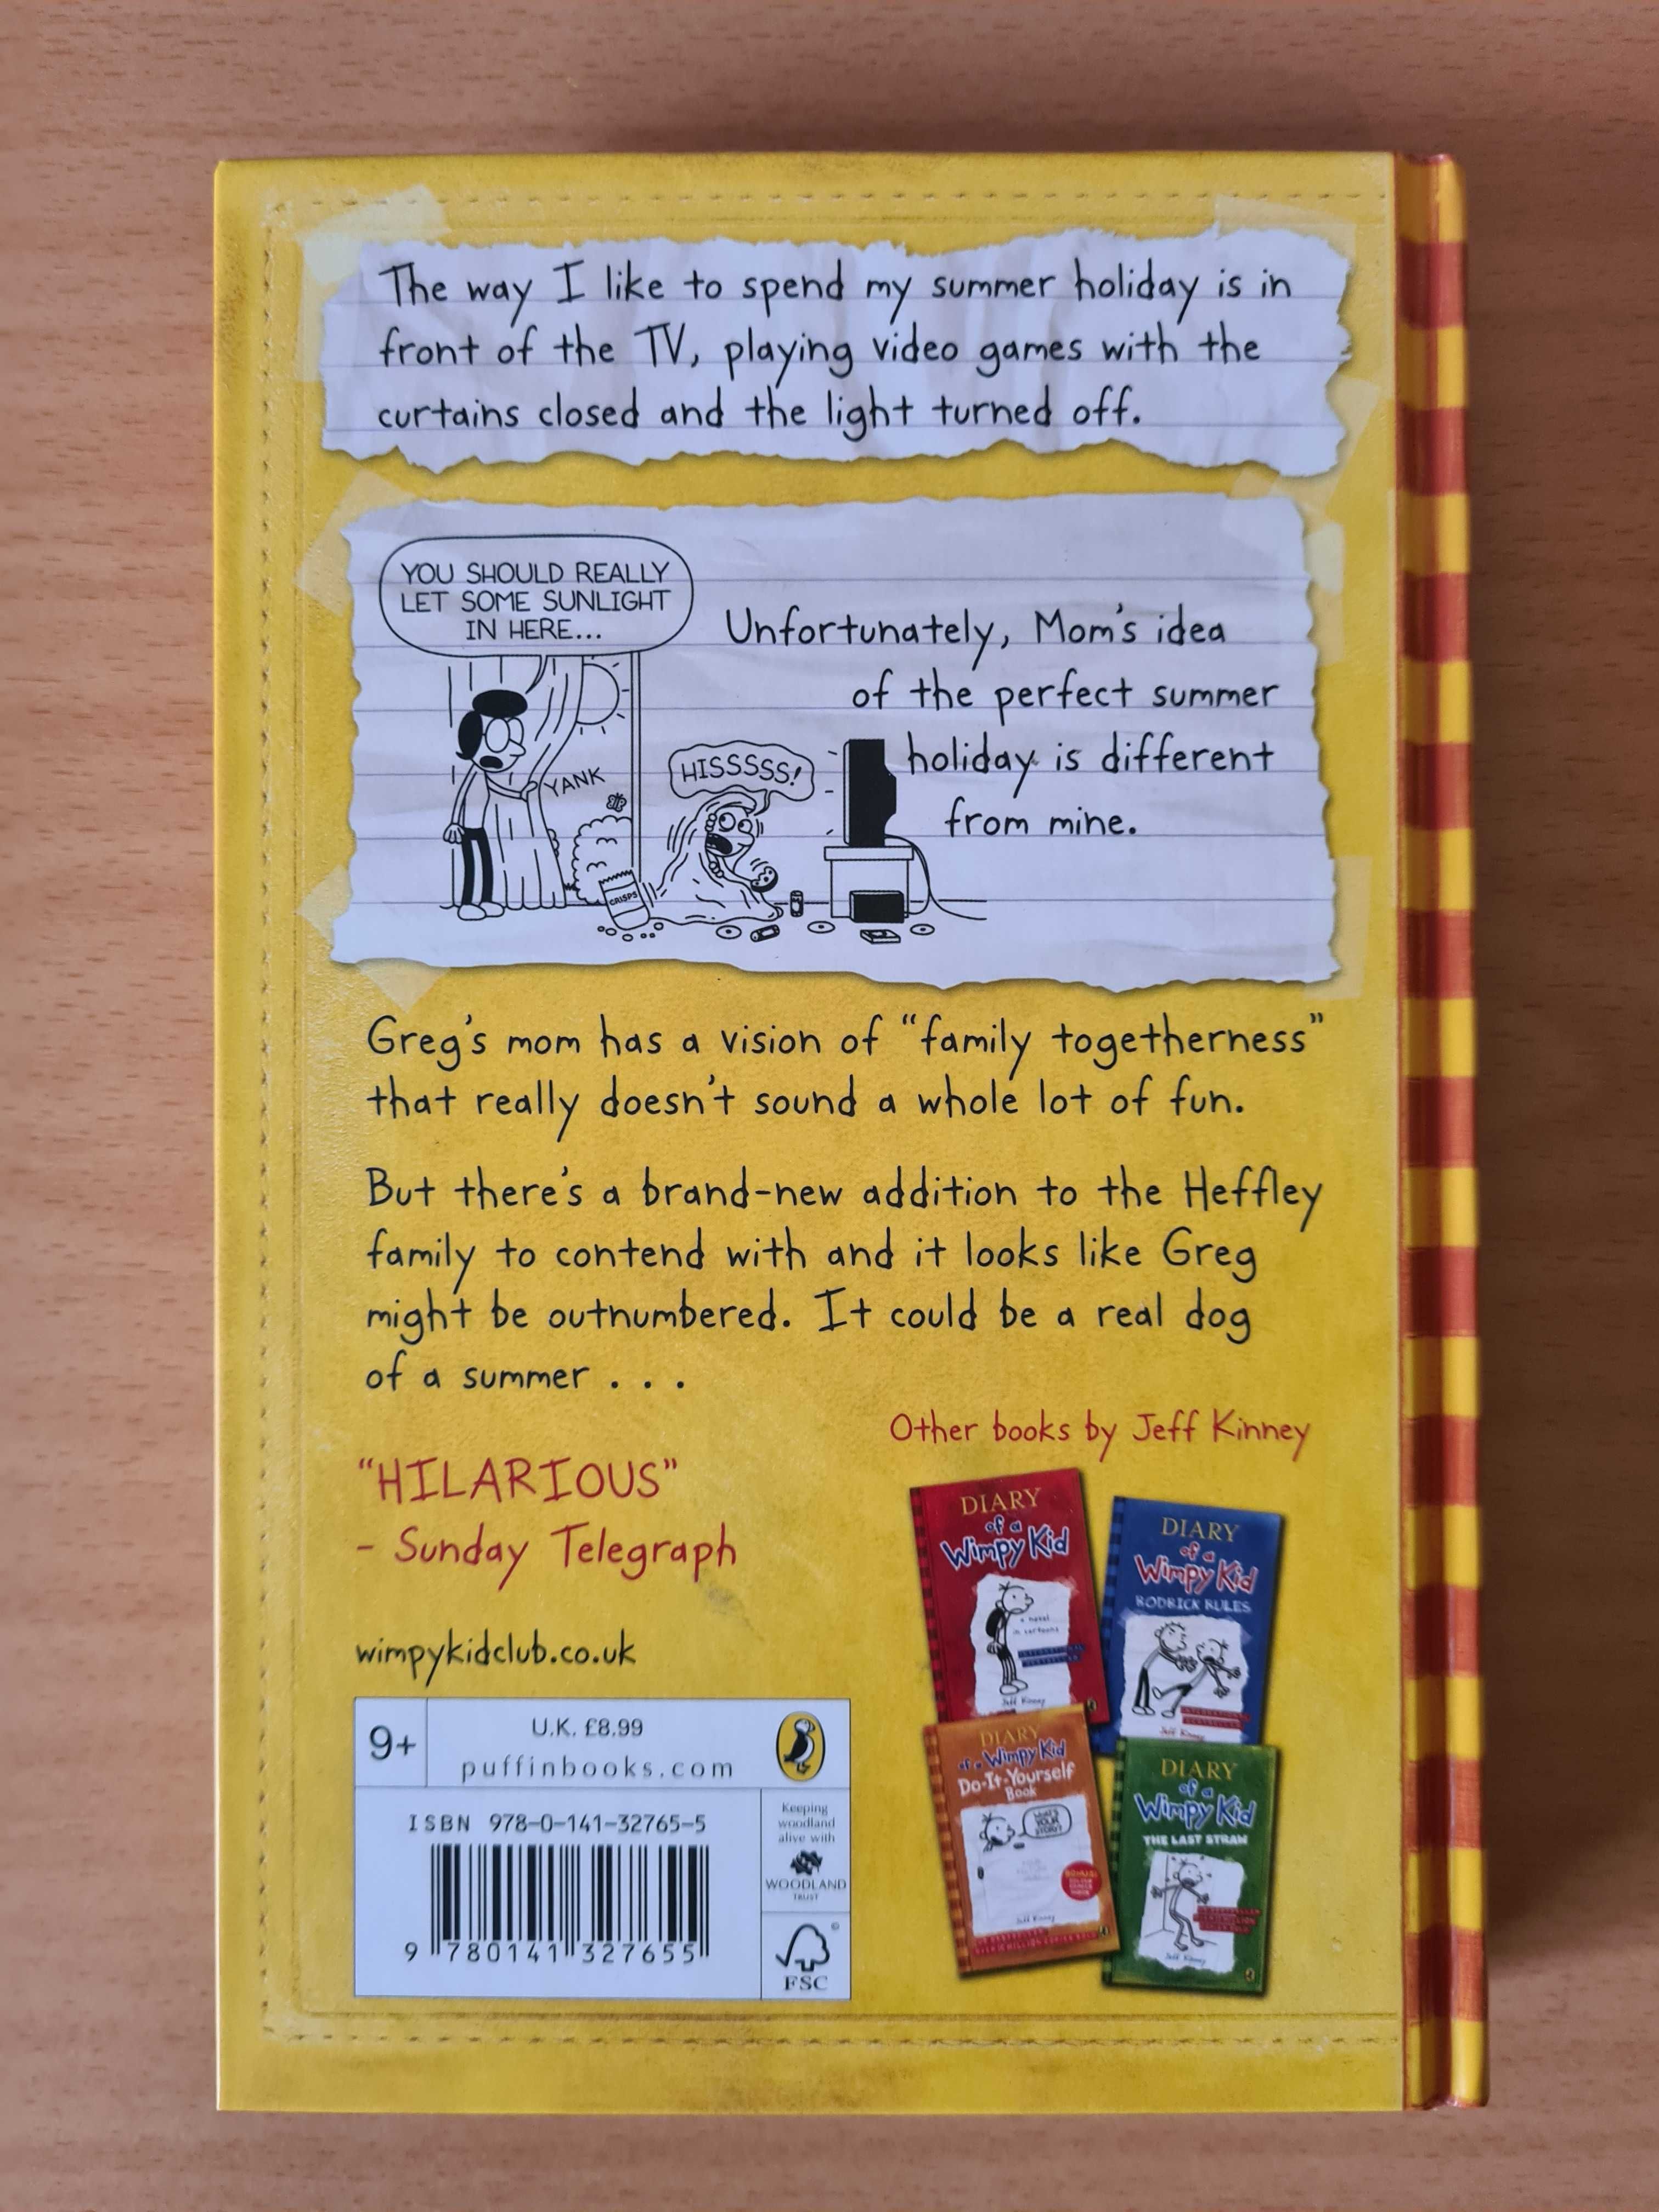 The way I like to spend my summer holiday is in
front of the TV, playing video games with the
curtains closed and the light turned off.
YOU SHOULD REALLY
LET SOME SUNLIGHT
IN HERE...
YANK
HISSSSS!
CRISPS
Unfortunately, Mom's idea
of the perfect summer
holiday is different
from mine.
Greg's mom has a vision of “family togetherness”
that really doesn't sound a whole lot of fun.
But there's a brand-new addition to the Heffley
family to contend with and it looks like Greg
might be outnumbered. It could be a real dog
of a summer . . .
“HILARIOUS”
- Sunday Telegraph
wimpykidclub.co.uk
9+
U.K. £8.99
puffinbooks.com
ISBN 978-0-141-32765-5
9 780141 327655
Keeping
woodland
alive with
WOODLAND
TRUST
©
FSC
Other books by Jeff Kinney
DIARY
of a
Wimpy Kid
a novel
in cartoons
Jeff Kinney
DIARY
of a
Wimpy Kid
RODRICK RULES
Jeff Kinney
DIARY
of a Wimpy Kid
Do-It-Yourself
Book
WHAT'S
YOUR
STORY?
Jeff Kinney
DIARY
of a
Wimpy Kid
THE LAST STRAW
Jeff Kinney